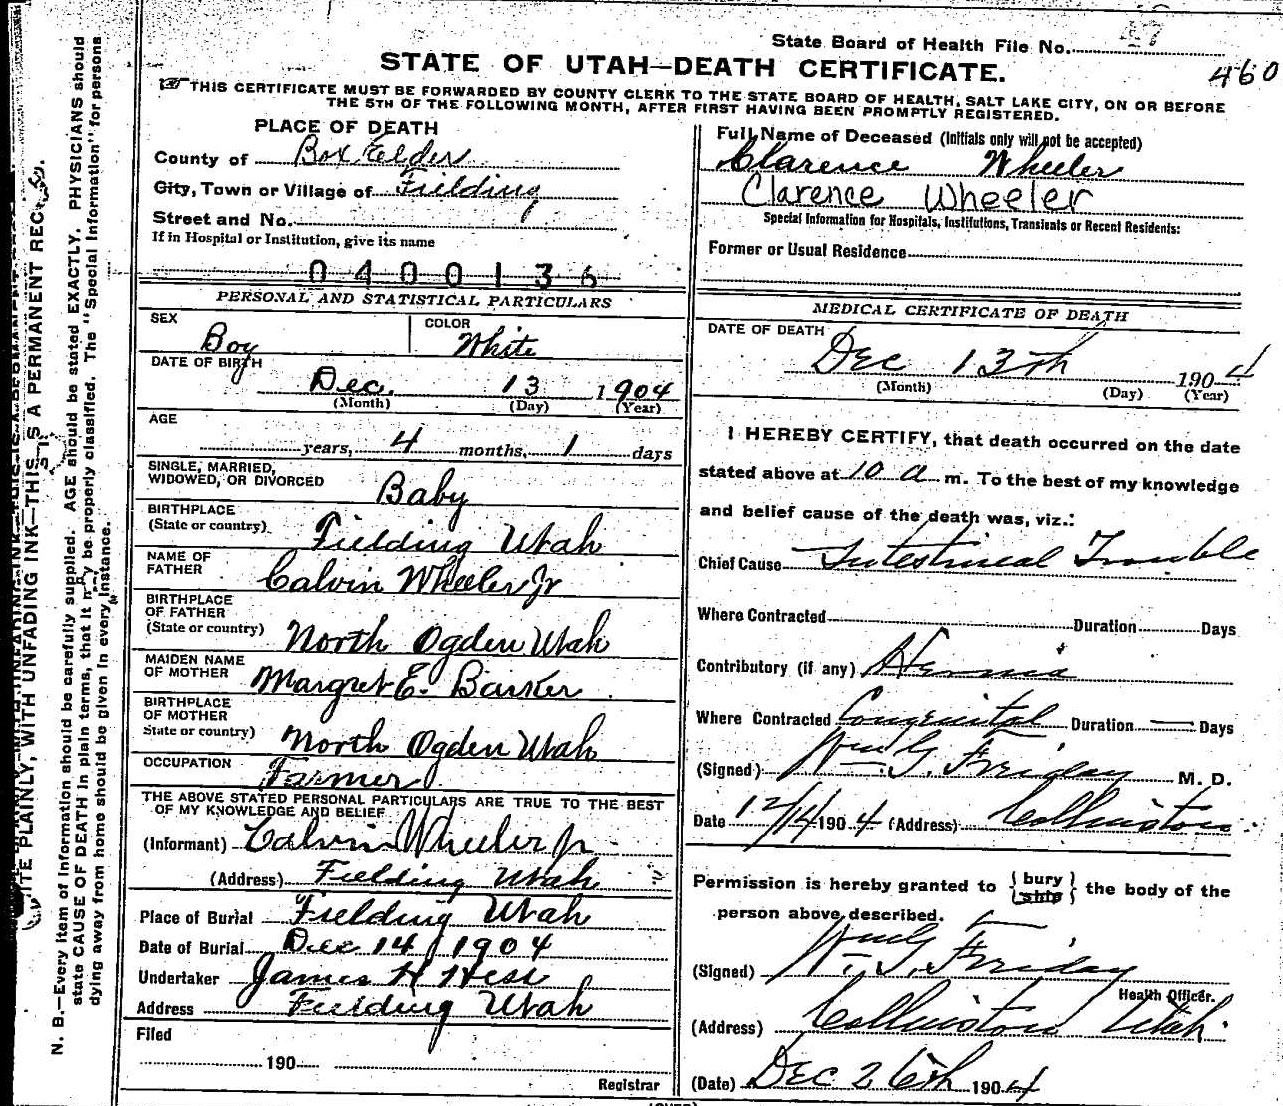 State Board of Health File No. 47
460
STATE OF UTAH—DEATH CERTIFICATE.
THIS CERTIFICATE MUST BE FORWARDED BY COUNTY CLERK TO THE STATE BOARD OF HEALTH, SALT LAKE CITY, ON OR BEFORE
THE 5TH OF THE FOLLOWING MONTH, AFTER FIRST HAVING BEEN PROMPTLY REGISTERED.
PLACE OF DEATH
County of Box Elder
City, Town or Village of Fielding
Street and No.
If in Hospital or Institution, give its name
0400136
Full Name of Deceased (Initials only will not be accepted)
Clarence Wheeler
Clarence Wheeler
Special Information for Hospitals, Institutions, Transients or Recent Residents:
Former or Usual Residence
PERSONAL AND STATISTICAL PARTICULARS
SEX Boy
COLOR White
DATE OF BIRTH
Dec. 13 1904
(Month) (Day) (Year)
AGE
years, 4 months, 1 days
SINGLE, MARRIED,
WIDOWED, OR DIVORCED Baby
BIRTHPLACE
(State or country) Fielding Utah
NAME OF
FATHER Calvin Wheeler Jr
BIRTHPLACE
OF FATHER
(State or country) North Ogden Utah
MAIDEN NAME
OF MOTHER Margret E. Barker
BIRTHPLACE
OF MOTHER
State or country) North Ogden Utah
OCCUPATION Farmer
THE ABOVE STATED PERSONAL PARTICULARS ARE TRUE TO THE BEST
OF MY KNOWLEDGE AND BELIEF
(Informant) Calvin Wheeler Jr
(Address) Fielding Utah
Place of Burial Fielding Utah
Date of Burial Dec 14 1904
Undertaker James H Hess
Address Fielding Utah
Filed
190
Registrar
MEDICAL CERTIFICATE OF DEATH
DATE OF DEATH
Dec 13th 1904
(Month) (Day) (Year)
I HEREBY CERTIFY, that death occurred on the date
stated above at 10 a m. To the best of my knowledge
and belief cause of the death was, viz.:
Chief Cause Intestineal Trouble
Where Contracted Duration Days
Contributory (if any) Hernia
Where Contracted Congenital Duration Days
(Signed) Wm. G. Friday M. D.
Date 12/14 1904 (Address) Collinston
Permission is hereby granted to { bury ship } the body of the
person above described.
(Signed) Wm. G. Friday
Health Officer.
(Address) Collinston Utah.
(Date) Dec 26th 1904
(OVER)
WRITE PLAINLY, WITH UNFADING INK—THIS IS A PERMANENT RECORD.
N. B.—Every item of information should be carefully supplied. AGE should be stated EXACTLY. PHYSICIANS should
state CAUSE OF DEATH in plain terms, that it may be properly classified. The "Special Information" for persons
dying away from home should be given in every instance.